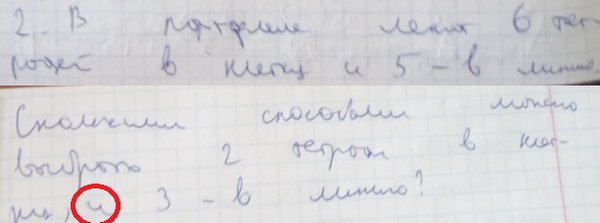 2. В портфеле лежит 6 тет-
радей в клетку и 5 – в линию.
Сколькими способами можно
выбрать 2 тетради в клет-
ку, и 3 – в линию?